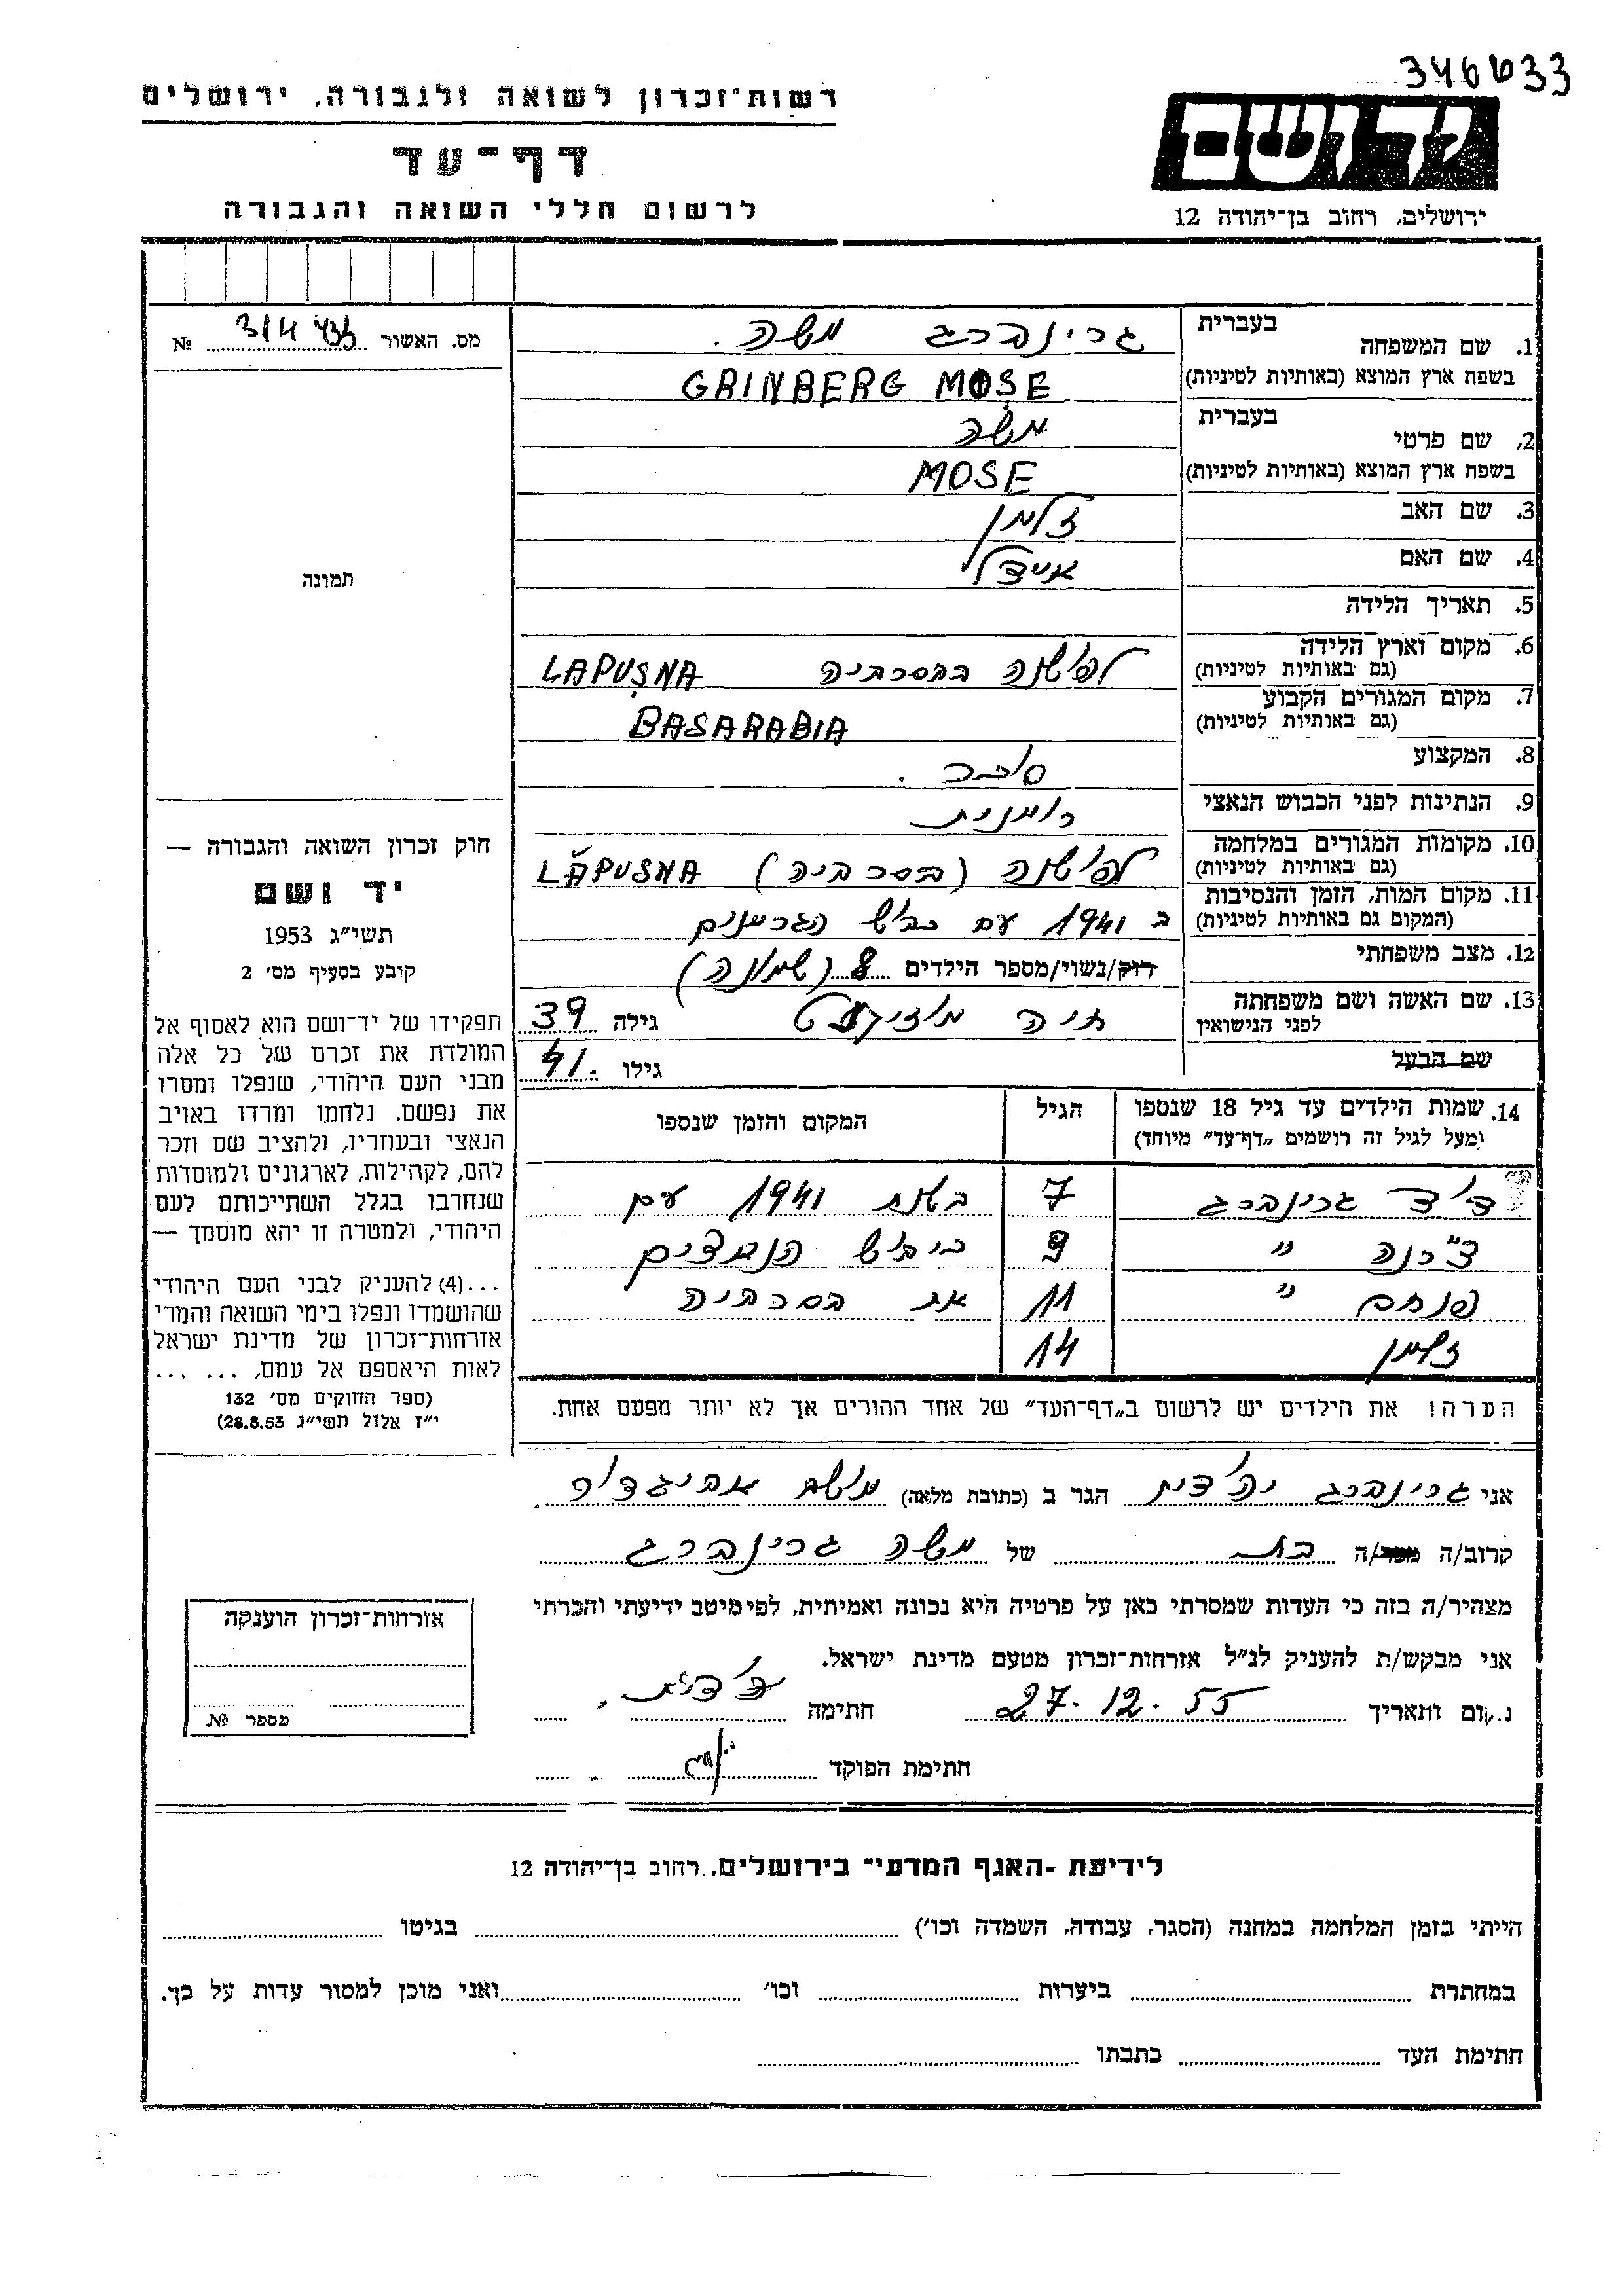 346633
רשות-זכרון לשואה ולגבורה, ירושלים
דף-עד
לרשום חללי השואה והגבורה
ידושם
ירושלים, רחוב בן-יהודה 12
מס. האשור 314433 №
תמונה
בעברית
1. שם המשפחה
גרינברג משה.
בשפת ארץ המוצא (באותיות לטיניות)
GRINBERG MOSE
בעברית
2. שם פרטי
משה
בשפת ארץ המוצא (באותיות לטיניות)
MOSE
3. שם האב
זלמן
4. שם האם
איידל
5. תאריך הלידה
6. מקום וארץ הלידה
(גם באותיות לטיניות)
לפושנה בבסרביה LAPUŞNA
7. מקום המגורים הקבוע
(גם באותיות לטיניות)
BASARABIA
8. המקצוע
סוחר.
9. הנתינות לפני הכבוש הנאצי
רומנית
10. מקומות המגורים במלחמה
(גם באותיות לטיניות)
לפושנה (בסרביה) LĂPUSNA
11. מקום המות, הזמן והנסיבות
(המקום גם באותיות לטיניות)
ב 1941 עם כבוש הגרמנים
12. מצב משפחתי
רוק/נשוי/מספר הילדים 8 (שמונה)
13. שם האשה ושם משפחתה
לפני הנישואין
חיה גילה 39
שם הבעל
גילו 41.
14. שמות הילדים עד גיל 18 שנספו
(מעל לגיל זה רושמים „דף-עד" מיוחד)
הגיל
המקום והזמן שנספו
דוד גרינברג 7 בשנת 1941 עם
" 9 כיבוש הנאצים
פנחס " 11 את בסרביה
זלמן 14
הערה! את הילדים יש לרשום ב„דף-העד" של אחד ההורים אך לא יותר מפעם אחת.
חוק זכרון השואה והגבורה —
יד ושם
תשי"ג 1953
קובע בסעיף מס׳ 2
תפקידו של יד-ושם הוא לאסוף אל
המולדת את זכרם של כל אלה
מבני העם היהודי, שנפלו ומסרו
את נפשם. נלחמו ומרדו באויב
הנאצי ובעוזריו, ולהציב שם וזכר
להם, לקהילות, לארגונים ולמוסדות
שנחרבו בגלל השתייכותם לעם
היהודי, ולמטרה זו יהא מוסמך —
...(4) להעניק לבני העם היהודי
שהושמדו ונפלו בימי השואה והמרי
אזרחות-זכרון של מדינת ישראל
לאות היאספם אל עמם, ... ...
(ספר החוקים מס׳ 132
י"ז אלול תשי"ג 28.8.53)
אני גרינברג יהודית הגר ב (כתובת מלאה) מושב אביגדור.
קרוב/ה מכר/ה בת של משה גרינברג
מצהיר/ה בזה כי העדות שמסרתי כאן על פרטיה היא נכונה ואמיתית, לפי מיטב ידיעתי והכרתי
אני מבקש/ת להעניק לנ"ל אזרחות-זכרון מטעם מדינת ישראל.
מקום ותאריך 27.12.55 חתימה
חתימת הפוקד
אזרחות-זכרון הוענקה
מספר №
לידיעת -האגף המדעי" בירושלים, רחוב בן-יהודה 12
הייתי בזמן המלחמה במחנה (הסגר, עבודה, השמדה וכו׳) בגיטו
במחתרת ביערות וכו׳ ואני מוכן למסור עדות על כך.
חתימת העד כתבתו